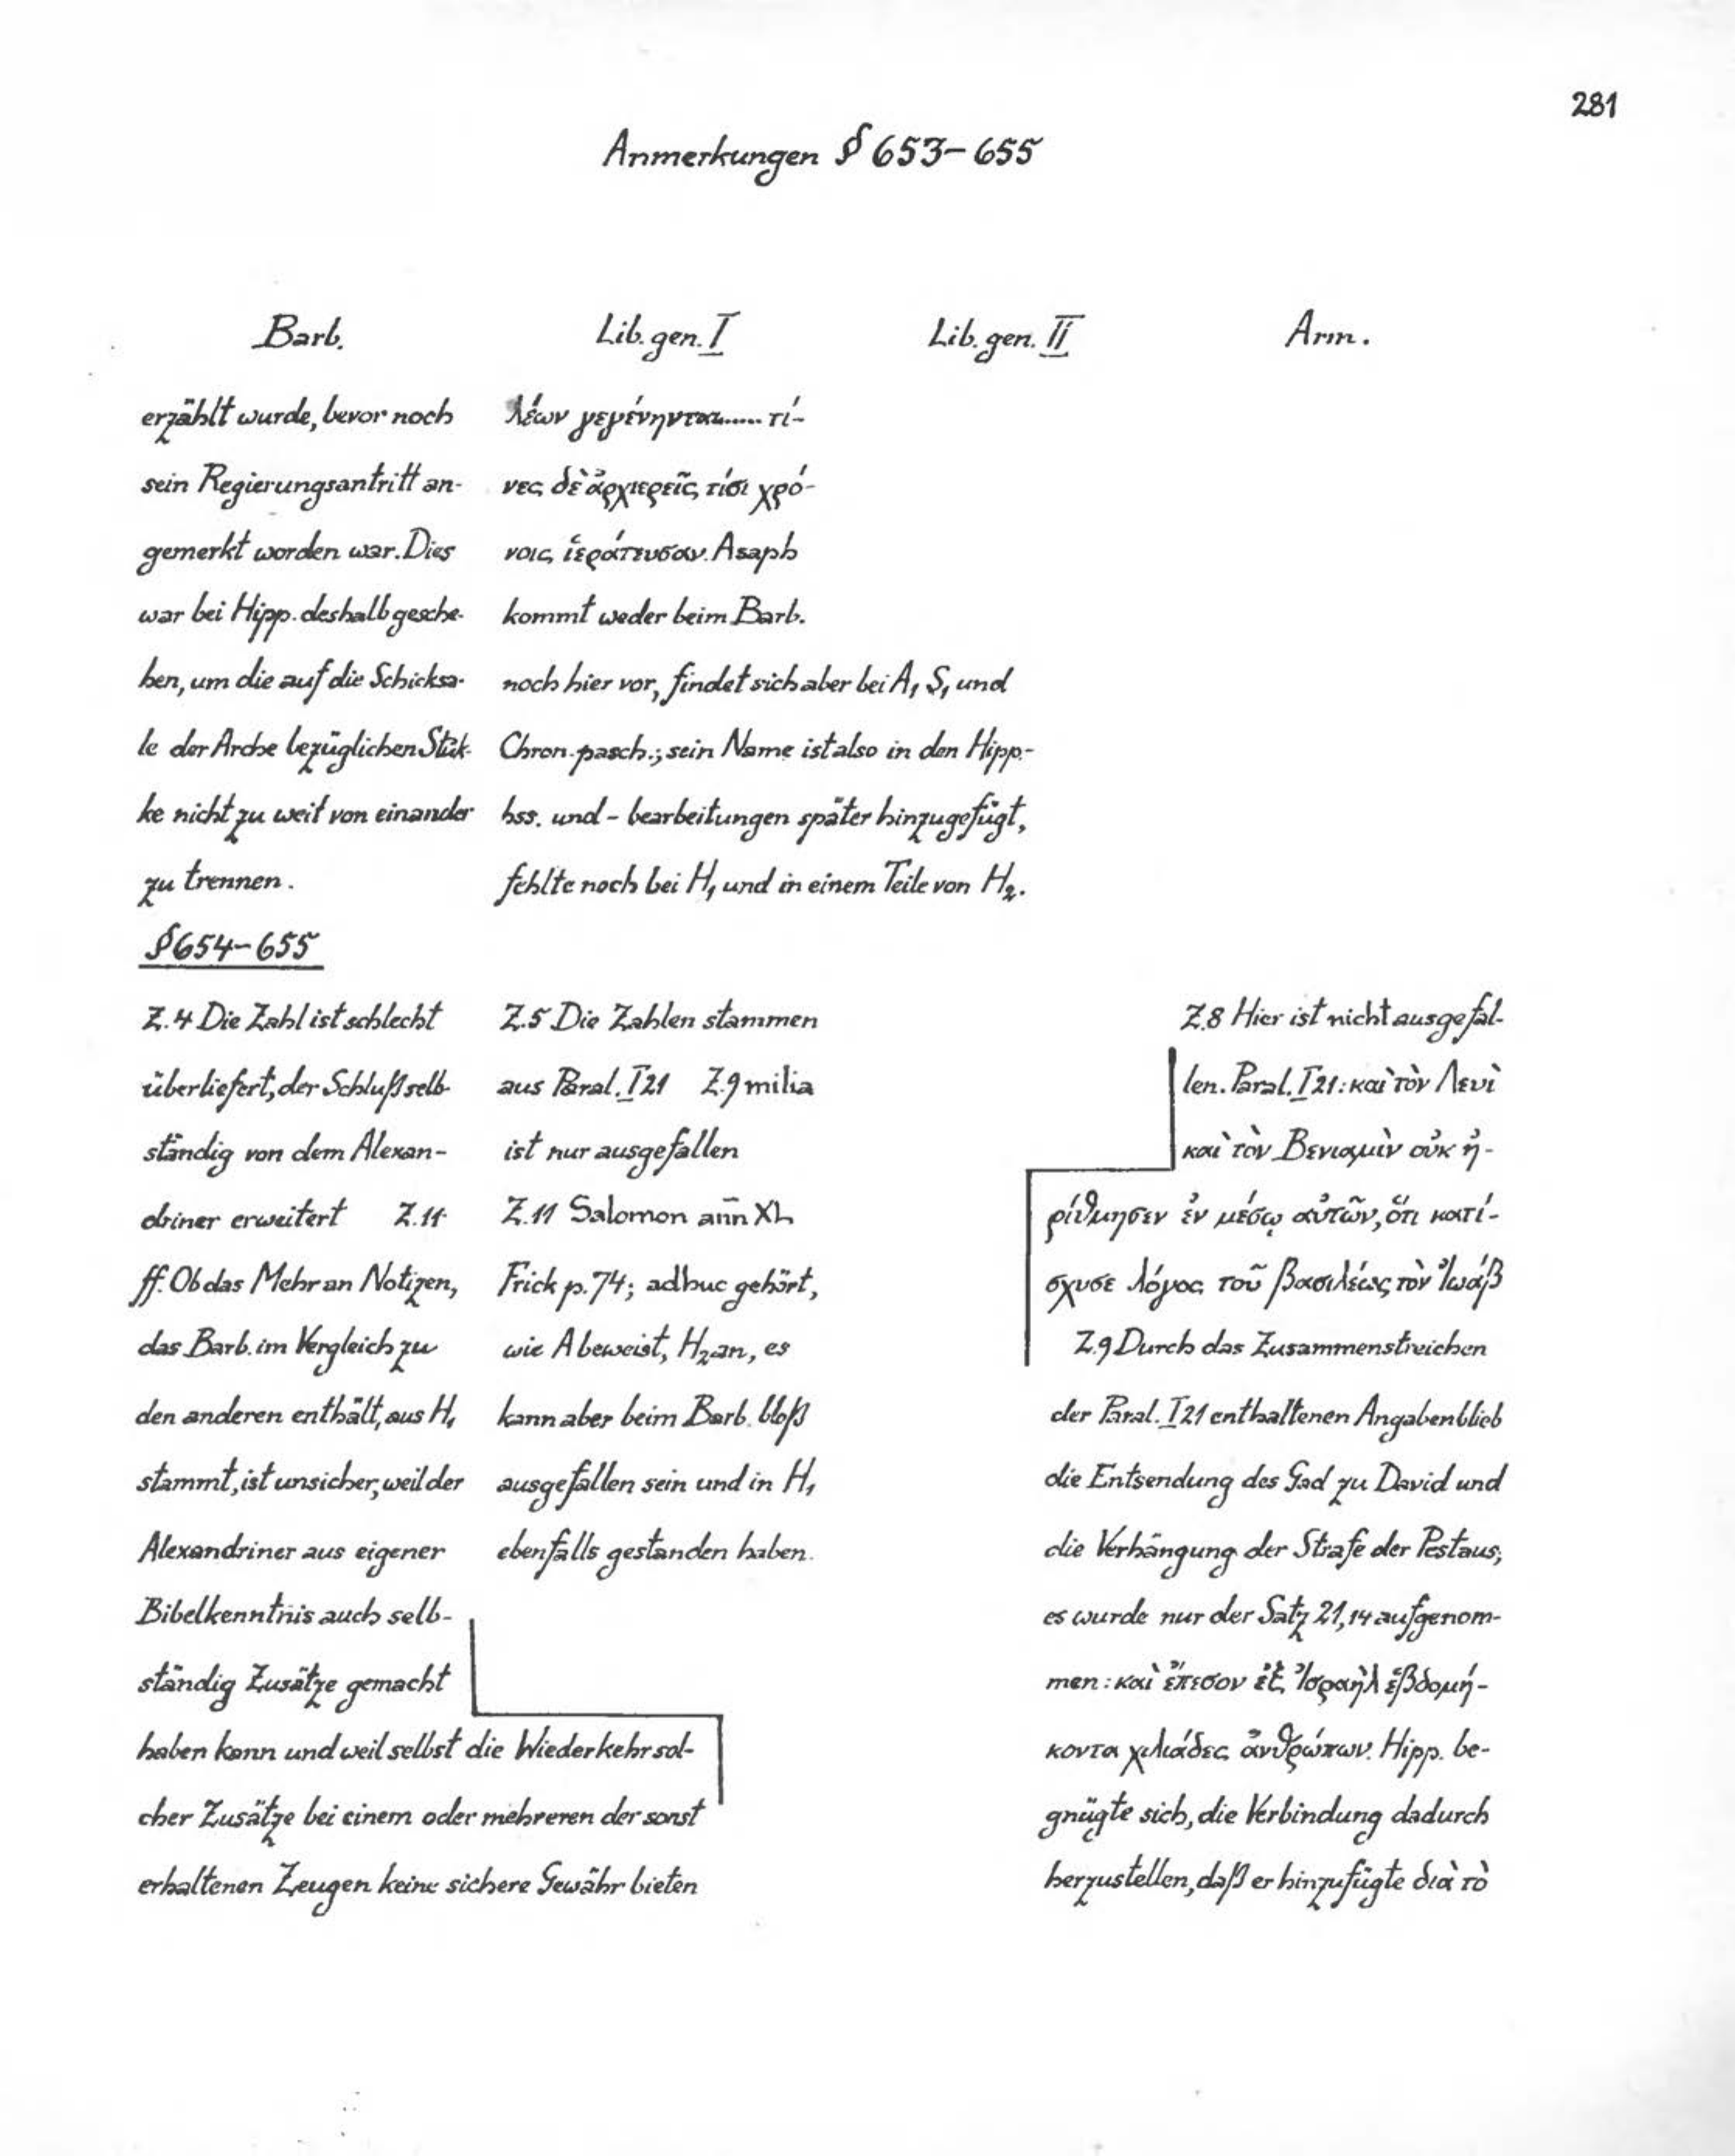 281
Anmerkungen § 653–655
Barb.
erzählt wurde, bevor noch
sein Regierungsantritt an-
gemerkt worden war. Dies
war bei Hipp. deshalb gesche-
hen, um die auf die Schicksa-
le der Arche bezüglichen Stük-
ke nicht zu weit von einander
zu trennen.
Lib. gen. I
λέων γεγένηνται..... τί-
νες δὲ ἀρχιερεῖς τίσι χρό-
νοις ἱεράτευσαν. Asaph
kommt weder beim Barb.
noch hier vor, findet sich aber bei A, S, und
Chron. pasch.; sein Name ist also in den Hipp.-
hss. und -bearbeitungen später hinzugefügt,
fehlte noch bei H₁ und in einem Teile von H₂.
Lib. gen. II
Arm.
§ 654–655
Z. 4 Die Zahl ist schlecht
überliefert, der Schluß selb-
ständig von dem Alexan-
driner erweitert Z. 11
ff. Ob das Mehr an Notizen,
das Barb. im Vergleich zu
den anderen enthält, aus H₁
stammt, ist unsicher, weil der
Alexandriner aus eigener
Bibelkenntnis auch selb-
ständig Zusätze gemacht
haben kann und weil selbst die Wiederkehr sol-
cher Zusätze bei einem oder mehreren der sonst
erhaltenen Zeugen keine sichere Gewähr bieten
Z. 5 Die Zahlen stammen
aus Paral. I 21 Z. 9 milia
ist nur ausgefallen
Z. 11 Salomon ann̄ XL
Frick p. 74; adhuc gehört,
wie A beweist, H₂ an, es
kann aber beim Barb. bloß
ausgefallen sein und in H₁
ebenfalls gestanden haben.
Z. 8 Hier ist nicht ausgefal-
len. Paral. I 21: καὶ τὸν Λευὶ
καὶ τὸν Βενιαμὶν οὐκ ἠ-
ρίθμησεν ἐν μέσῳ αὐτῶν, ὅτι κατί-
σχυσε λόγος τοῦ βασιλέως τὸν Ἰωάβ
Z. 9 Durch das Zusammenstreichen
der Paral. I 21 enthaltenen Angaben blieb
die Entsendung des Gad zu David und
die Verhängung der Strafe der Pest aus;
es wurde nur der Satz 21,14 aufgenom-
men: καὶ ἔπεσον ἐξ Ἰσραὴλ ἑβδομή-
κοντα χιλιάδες ἀνθρώπων. Hipp. be-
gnügte sich, die Verbindung dadurch
herzustellen, daß er hinzufügte διὰ τὸ